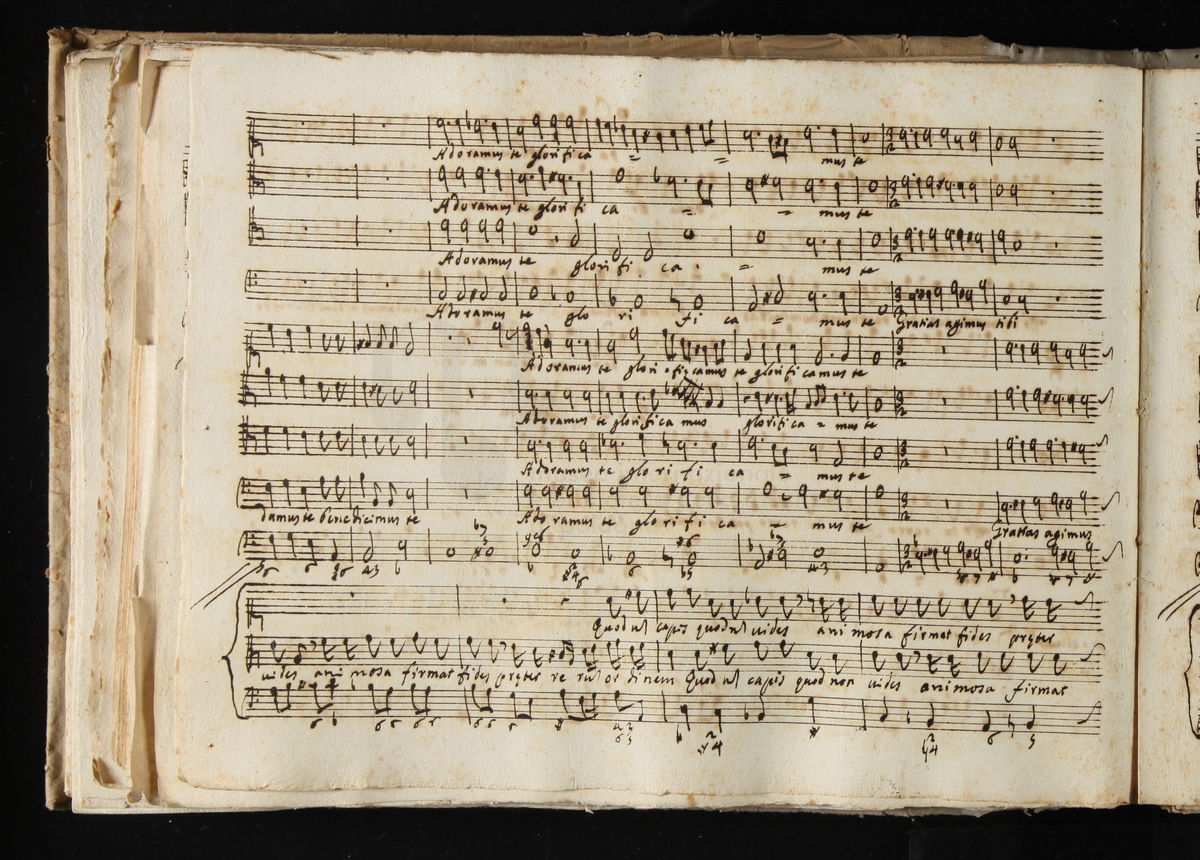 Adoramus te glorifica = = mus te
Adoramus te glorifi ca = = mus te
Adoramus te glorifi ca = mus te
Adoramus te glo ri fi ca = mus te Gratias agimus tibi
Adoramus te glorificamus te glorificamus te
Adoramus te glorifica mus glorifica = mus te
Adoramus te glo ri fi ca = mus te
damus te benedicimus te Adoramus te glo ri fi ca = mus te Gratias agimus
Quod nō capis quod nō vides ani mosa firmat fides pręter
vides ani mosa firmat fides pręter re rūt or dinem Quod nō capis quod non vides animosa firmat